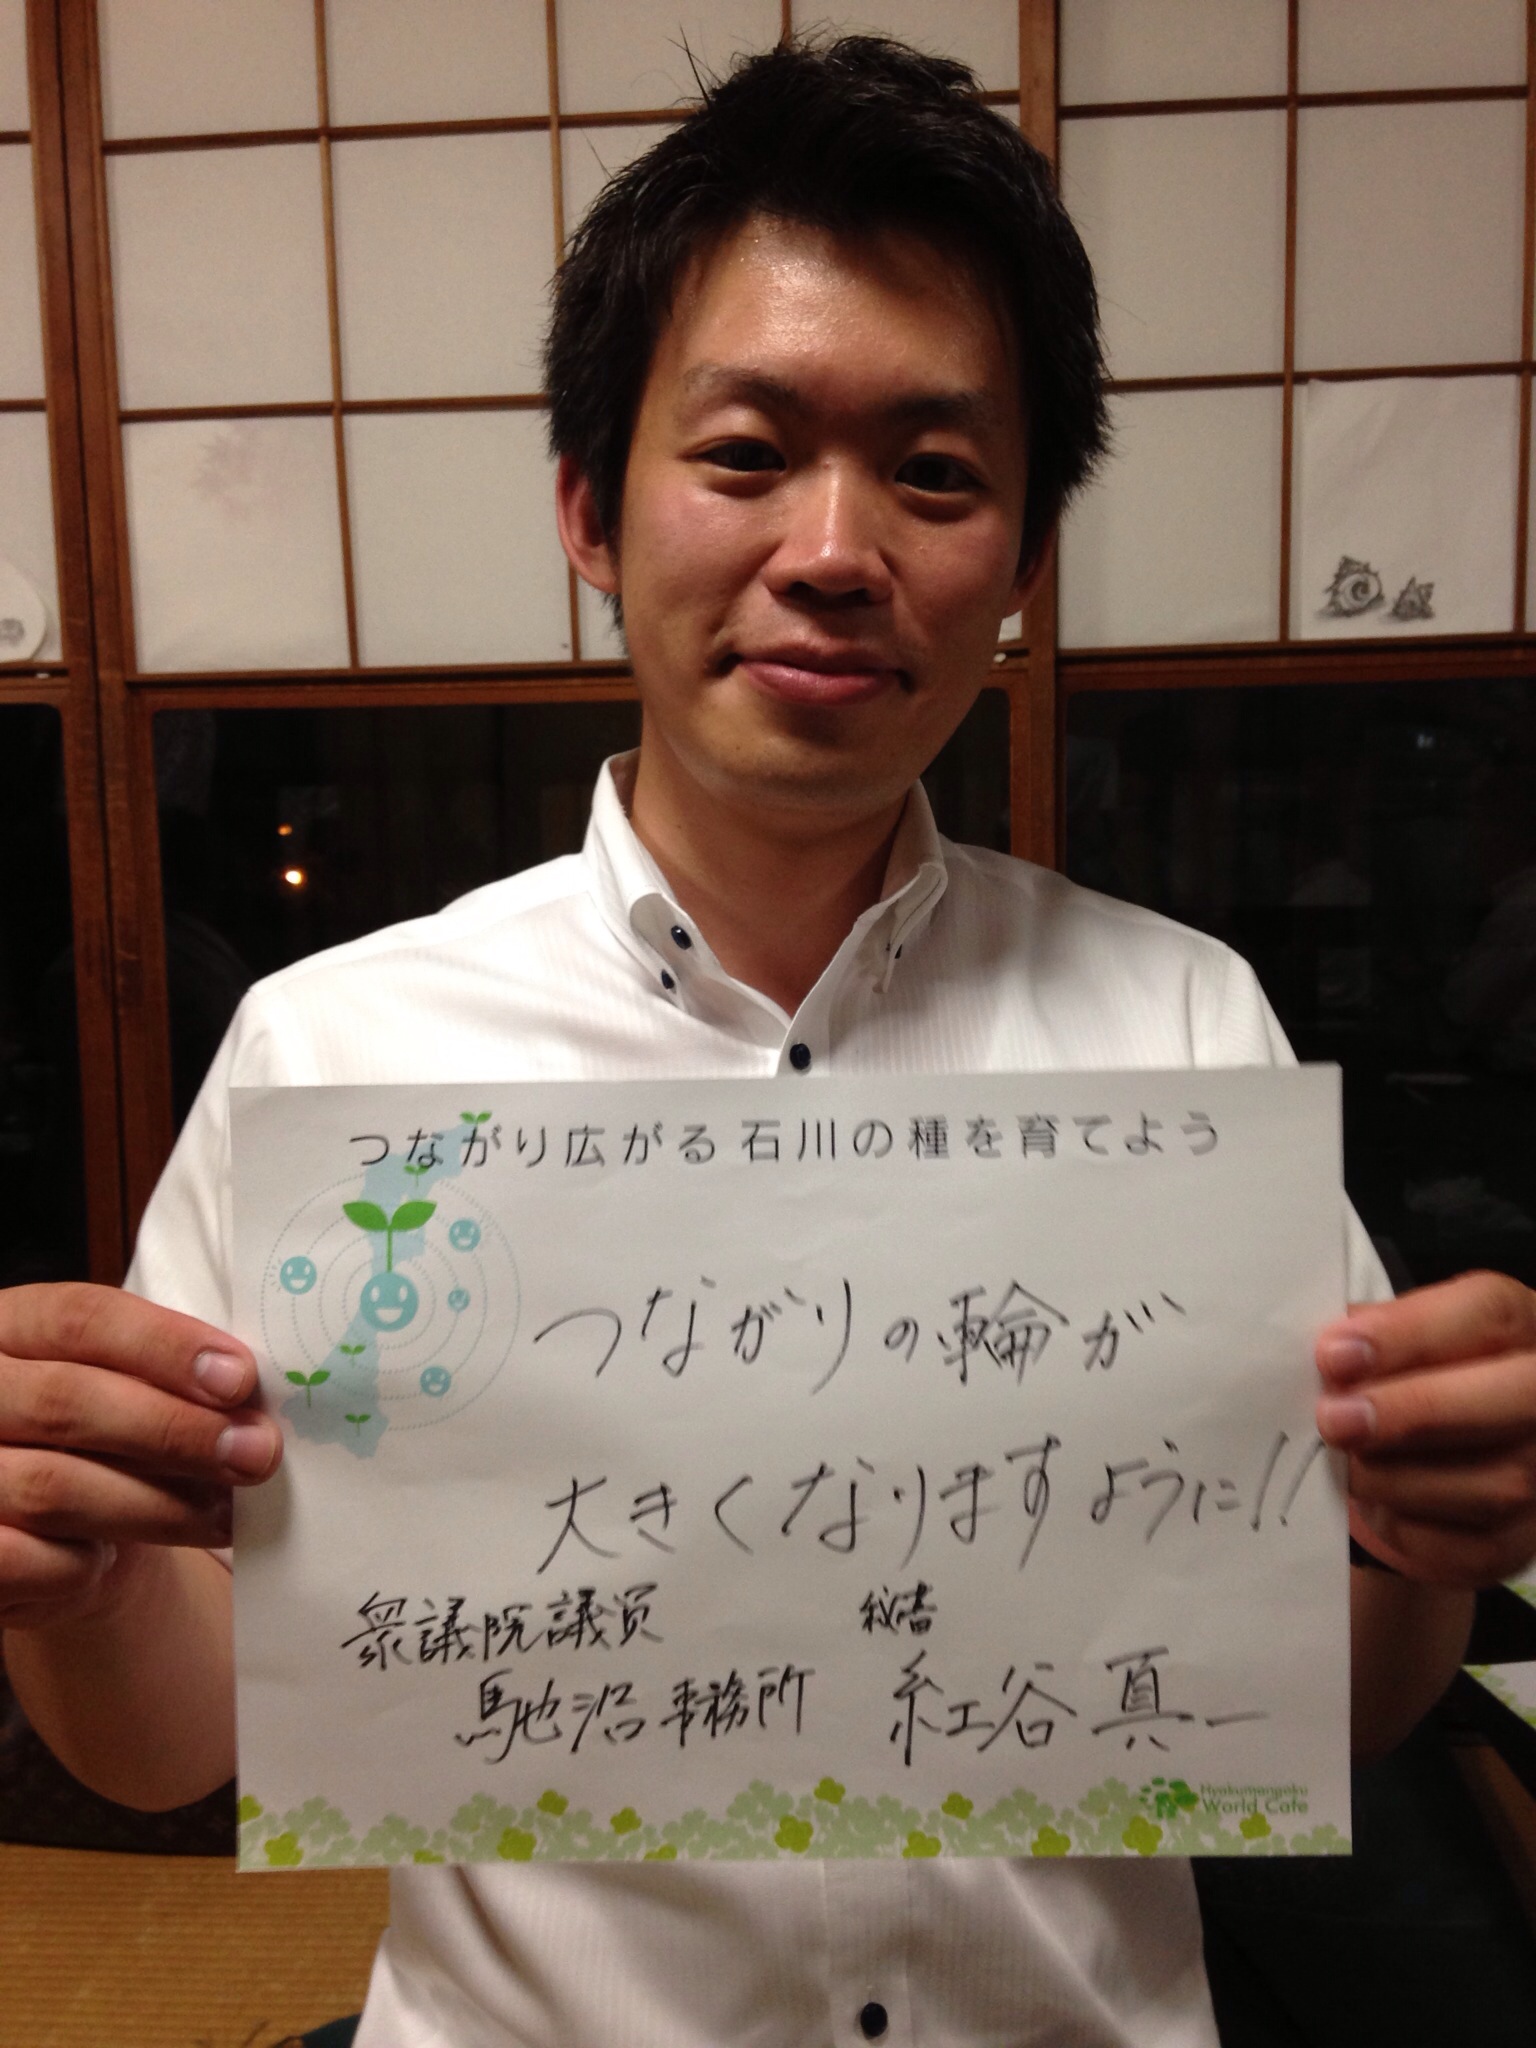 つながり広がる石川の種を育てよう
つながりの輪が
大きくなりますように!!
衆議院議員 秘書
馳浩事務所 紅谷真一
Hyakumangoku
World Cafe